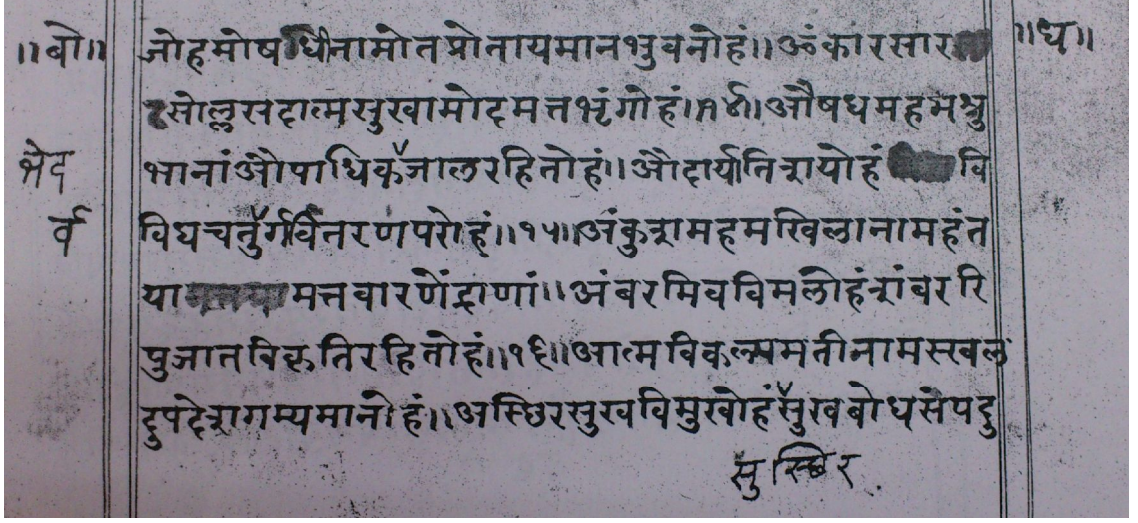 ॥बो॥ जोहमोषधीनामोतप्रोतायमानभुवनोहं॥ॐकारसार ॥ध॥
सोल्लसदात्मसुखामोदमत्तभृंगोहं।१४।औषधमहमश्रु
भेद भानांऔपाधिकजालरहितोहं॥औदार्यातिशयोहं वि
र्व विधचतुर्गवितरणपरोहं॥१५॥अंकुशमहमखिलानामहंत
या मत्तवारणेंद्राणां॥अंबरमिवविमलोहंशंबररि
पुजातविकृतिरहितोहं॥१६॥आत्मविकल्पमतीनामस्खल
दुपदेशगम्यमानोहं॥अस्थिरसुखविमुखोहंसुखबोधसंपदु
सुस्थिर